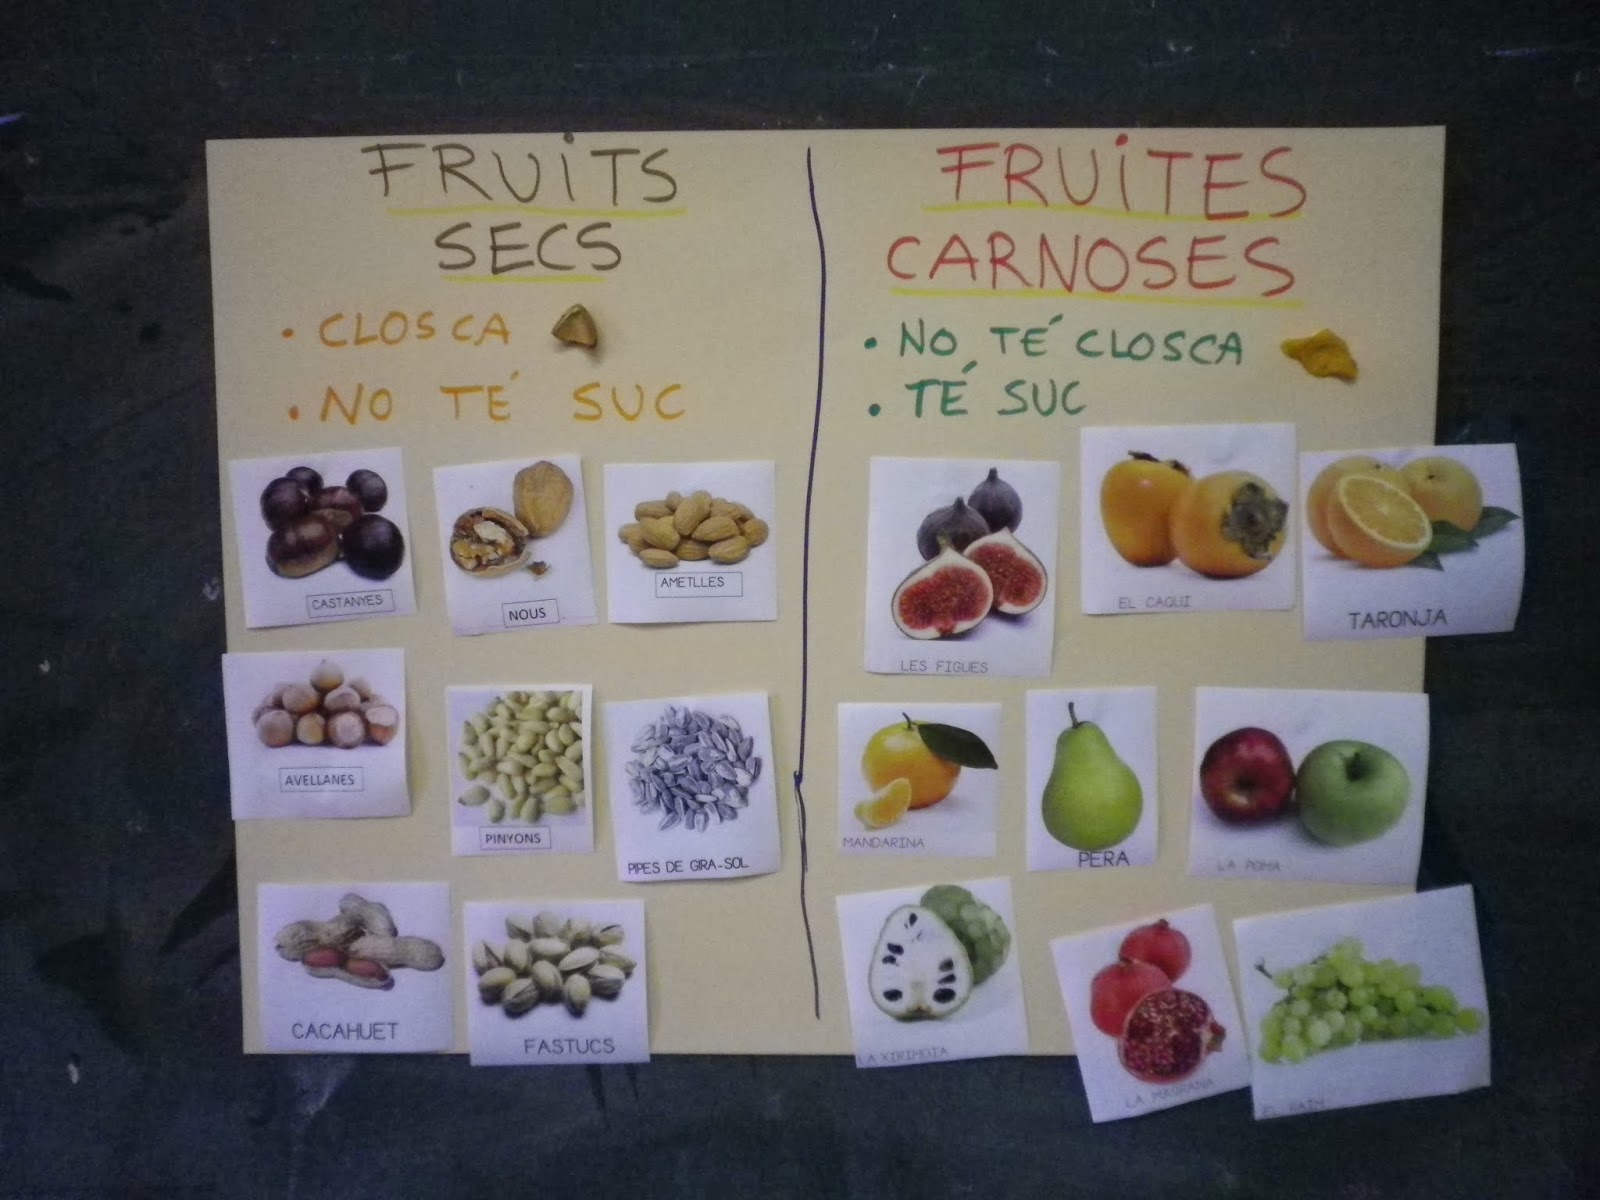 FRUITS
SECS
• CLOSCA
• NO TÉ SUC
CASTANYES
NOUS
AMETLLES
AVELLANES
PINYONS
PIPES DE GIRA-SOL
CACAHUET
FASTUCS
FRUITES
CARNOSES
• NO TÉ CLOSCA
• TÉ SUC
LES FIGUES
EL CAQUI
TARONJA
MANDARINA
PERA
LA POMA
LA XIRIMOIA
LA MAGRANA
EL RAÏM